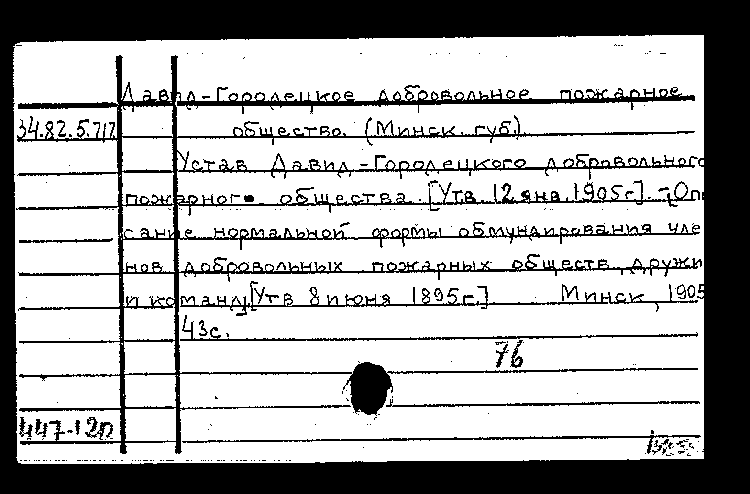 Давид-Городецкое добровольное пожарное
34.82.5.717 общество. (Минск. губ.).
Устав Давид-Городецкого добровольного
пожарного общества. [Утв. 12 янв. 1905 г.]. - [Опи
сание нормальной формы обмундирования чле
нов добровольных пожарных обществ, дружи
и команд. [Утв 8 июня 1895 г.] Минск, 1905
43 с.
76
447-12п